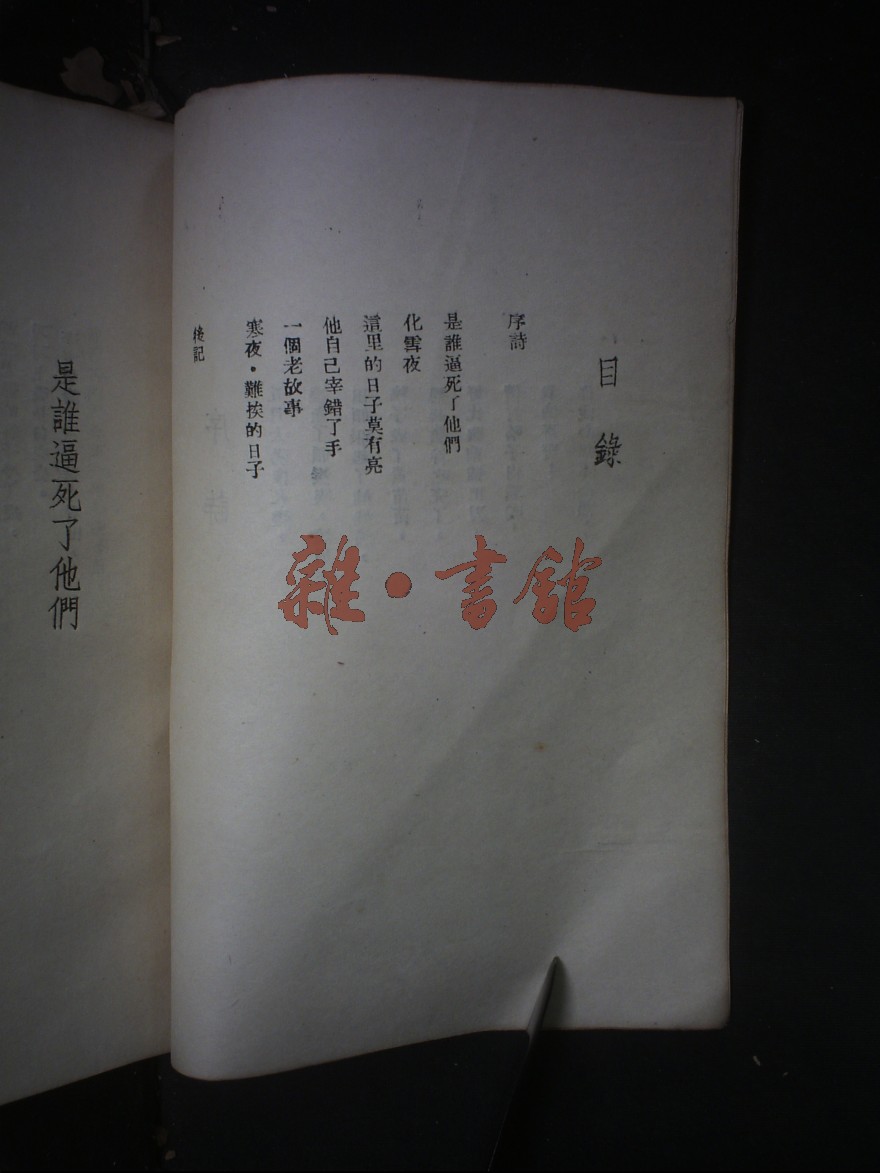 目錄
序詩
是誰逼死了他們
化雪夜
這里的日子莫有亮
他自己宰錯了手
一個老故事
寒夜•難挨的日子
後記
是誰逼死了他們
雜•書館